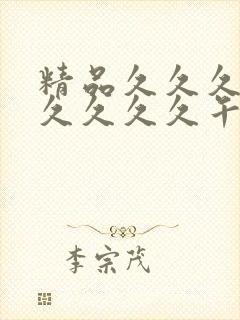 精品久久久
久久久久午
李宗茂